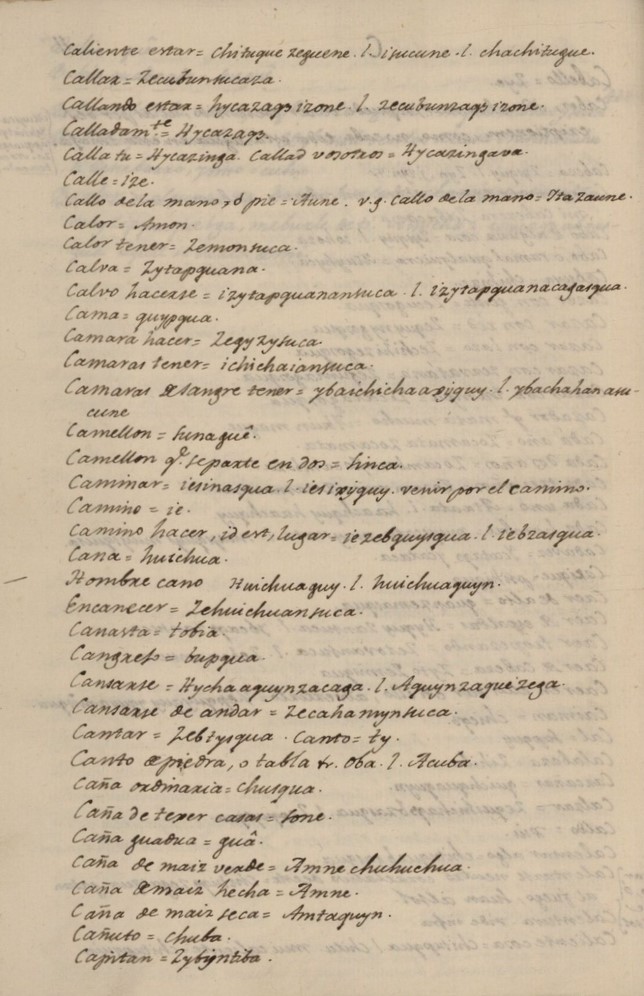 Caliente estar = chituque zeguene. l. isucune. l. chachituque.
Callar = Zecubunsucaza.
Callando estar = hycazaqs izone. l. zecubunzaqs izone.
Calladam.te = Hycazaqs.
Calla tu = Hycazinga. Callad vosotros = Hycazingava.
Calle = ize.
Callo de la mano, ó pie = Aune. v.g. callo de la mano = Ita zaune.
Calor = Amon.
Calor tener = Zemonsuca.
Calva = Zytapquana.
Calvo hacerse = izytapquanansuca. l. izytapquanacagasqua.
Cama = quypqua.
Camara hacer = Zegyzysuca.
Camaras tener = ichichaiansuca.
Camaras de sangre tener = ybaichichaaxijquy. l. ybachahanasu-
cune
Camellon = sunaguê.
Camellon q.e se parte en dos = sinca.
Caminar = iesinasqua. l. iesixijquy. venir por el camino.
Camino = ie.
Camino hacer, id est, lugar = iezebquysqua. l. iebzasqua.
Cana = huichua.
Hombre cano Huichuaguy. l. huichuaguyn.
Encanecer = Zehuichuansuca.
Canasta = tobia.
Cangrejo = bupqua.
Cansarse = Hychaaguynzacaga. l. Aguynzaguezega.
Cansarse de andar = Zecahamynsuca.
Cantar = Zebtysqua. Canto = ty.
Canto de piedra, o tabla &. Oba. l. Acuba.
Caña ordinaria = chusqua.
Caña de texer casas = sone.
Caña guadua = guâ.
Caña de maiz verde = Amne chuhuchua.
Caña de maiz hecha = Amne.
Caña de maiz seca = Amtaquyn.
Cañuto = chuba.
Capitan = Zybyntiba.